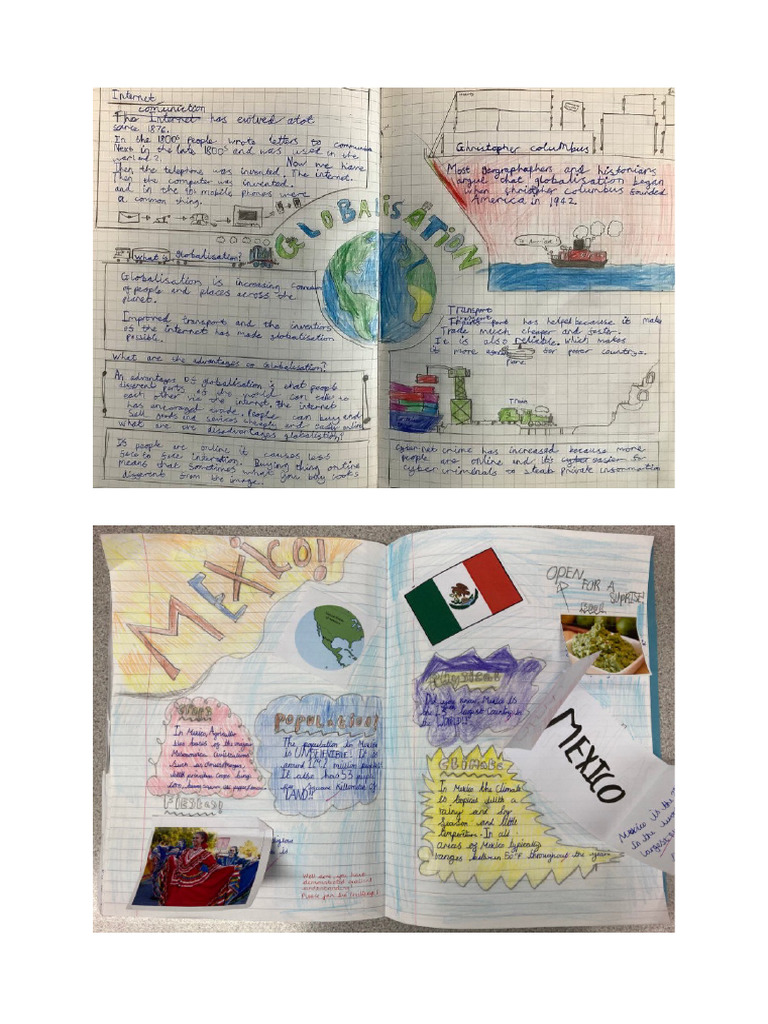 Internet
comuniction
The Internet has evolved alot
since 1876.
In the 1800s people wrote letters to
Next in the late 1800s and was used in the
world 2. Now we have
Then the telephone was invented. The interet.
Then the computer was invented.
and in the 10s mobile phones were
a common thing.
GLOBALISATION
What is Globalisation?
Globalisation is increasing
of people and places across the
planet.
Improved transport and the inventions
of the internet has made globalisation
possible.
What are the advantages of Globalisation?
An advantages of globalisation is that people
different parts of the world can talk to
each other via the internet. the internet
has encoraged trade. People can buy and
sell goods and services cheaply and easily online
what are the disadvantages globalistion?
If people are online it causes less
face to face interation. Buying thing online
means that sometimes what you buy looks
different from the image.
Christopher columbus
Most geographaphers and historians
argue that globalisation began
when christopher columbus founded
America in 1942.
Transport
Transport has helped because it make
Trade much cheaper and faster.
It is also reliable. which makes
it more for poorer countrys.
Plane
Train
Cyber net crime has increased because more
people are online and it's cyber easier for
cyber criminals to steal private information
MEXICO!
Crops
In Mexico, Agriculture
the basis of the major
Mesoamerica civilizations
Such as
with
Fiestas!
POPULATION!
The population in Mexico
is UNBELIEVABLE! It is
around 127.2 million people
It also has 53 people
Per Square Kilometre OF
LAND!!
Well done, you have
demonstrated excellent
understanding!
OPEN FOR A
SUPRISE
Physical
Did you know, Mexico is
the 13th largest Country in
the WORLD!!
Climate
In Mexico the Climate
is tropical with a
rainy and dry
Season and little
temperture. In all
areas of Mexico typically
ranges between 50°F throughout the year.
MEXICO
Mexico is the
in the
largest